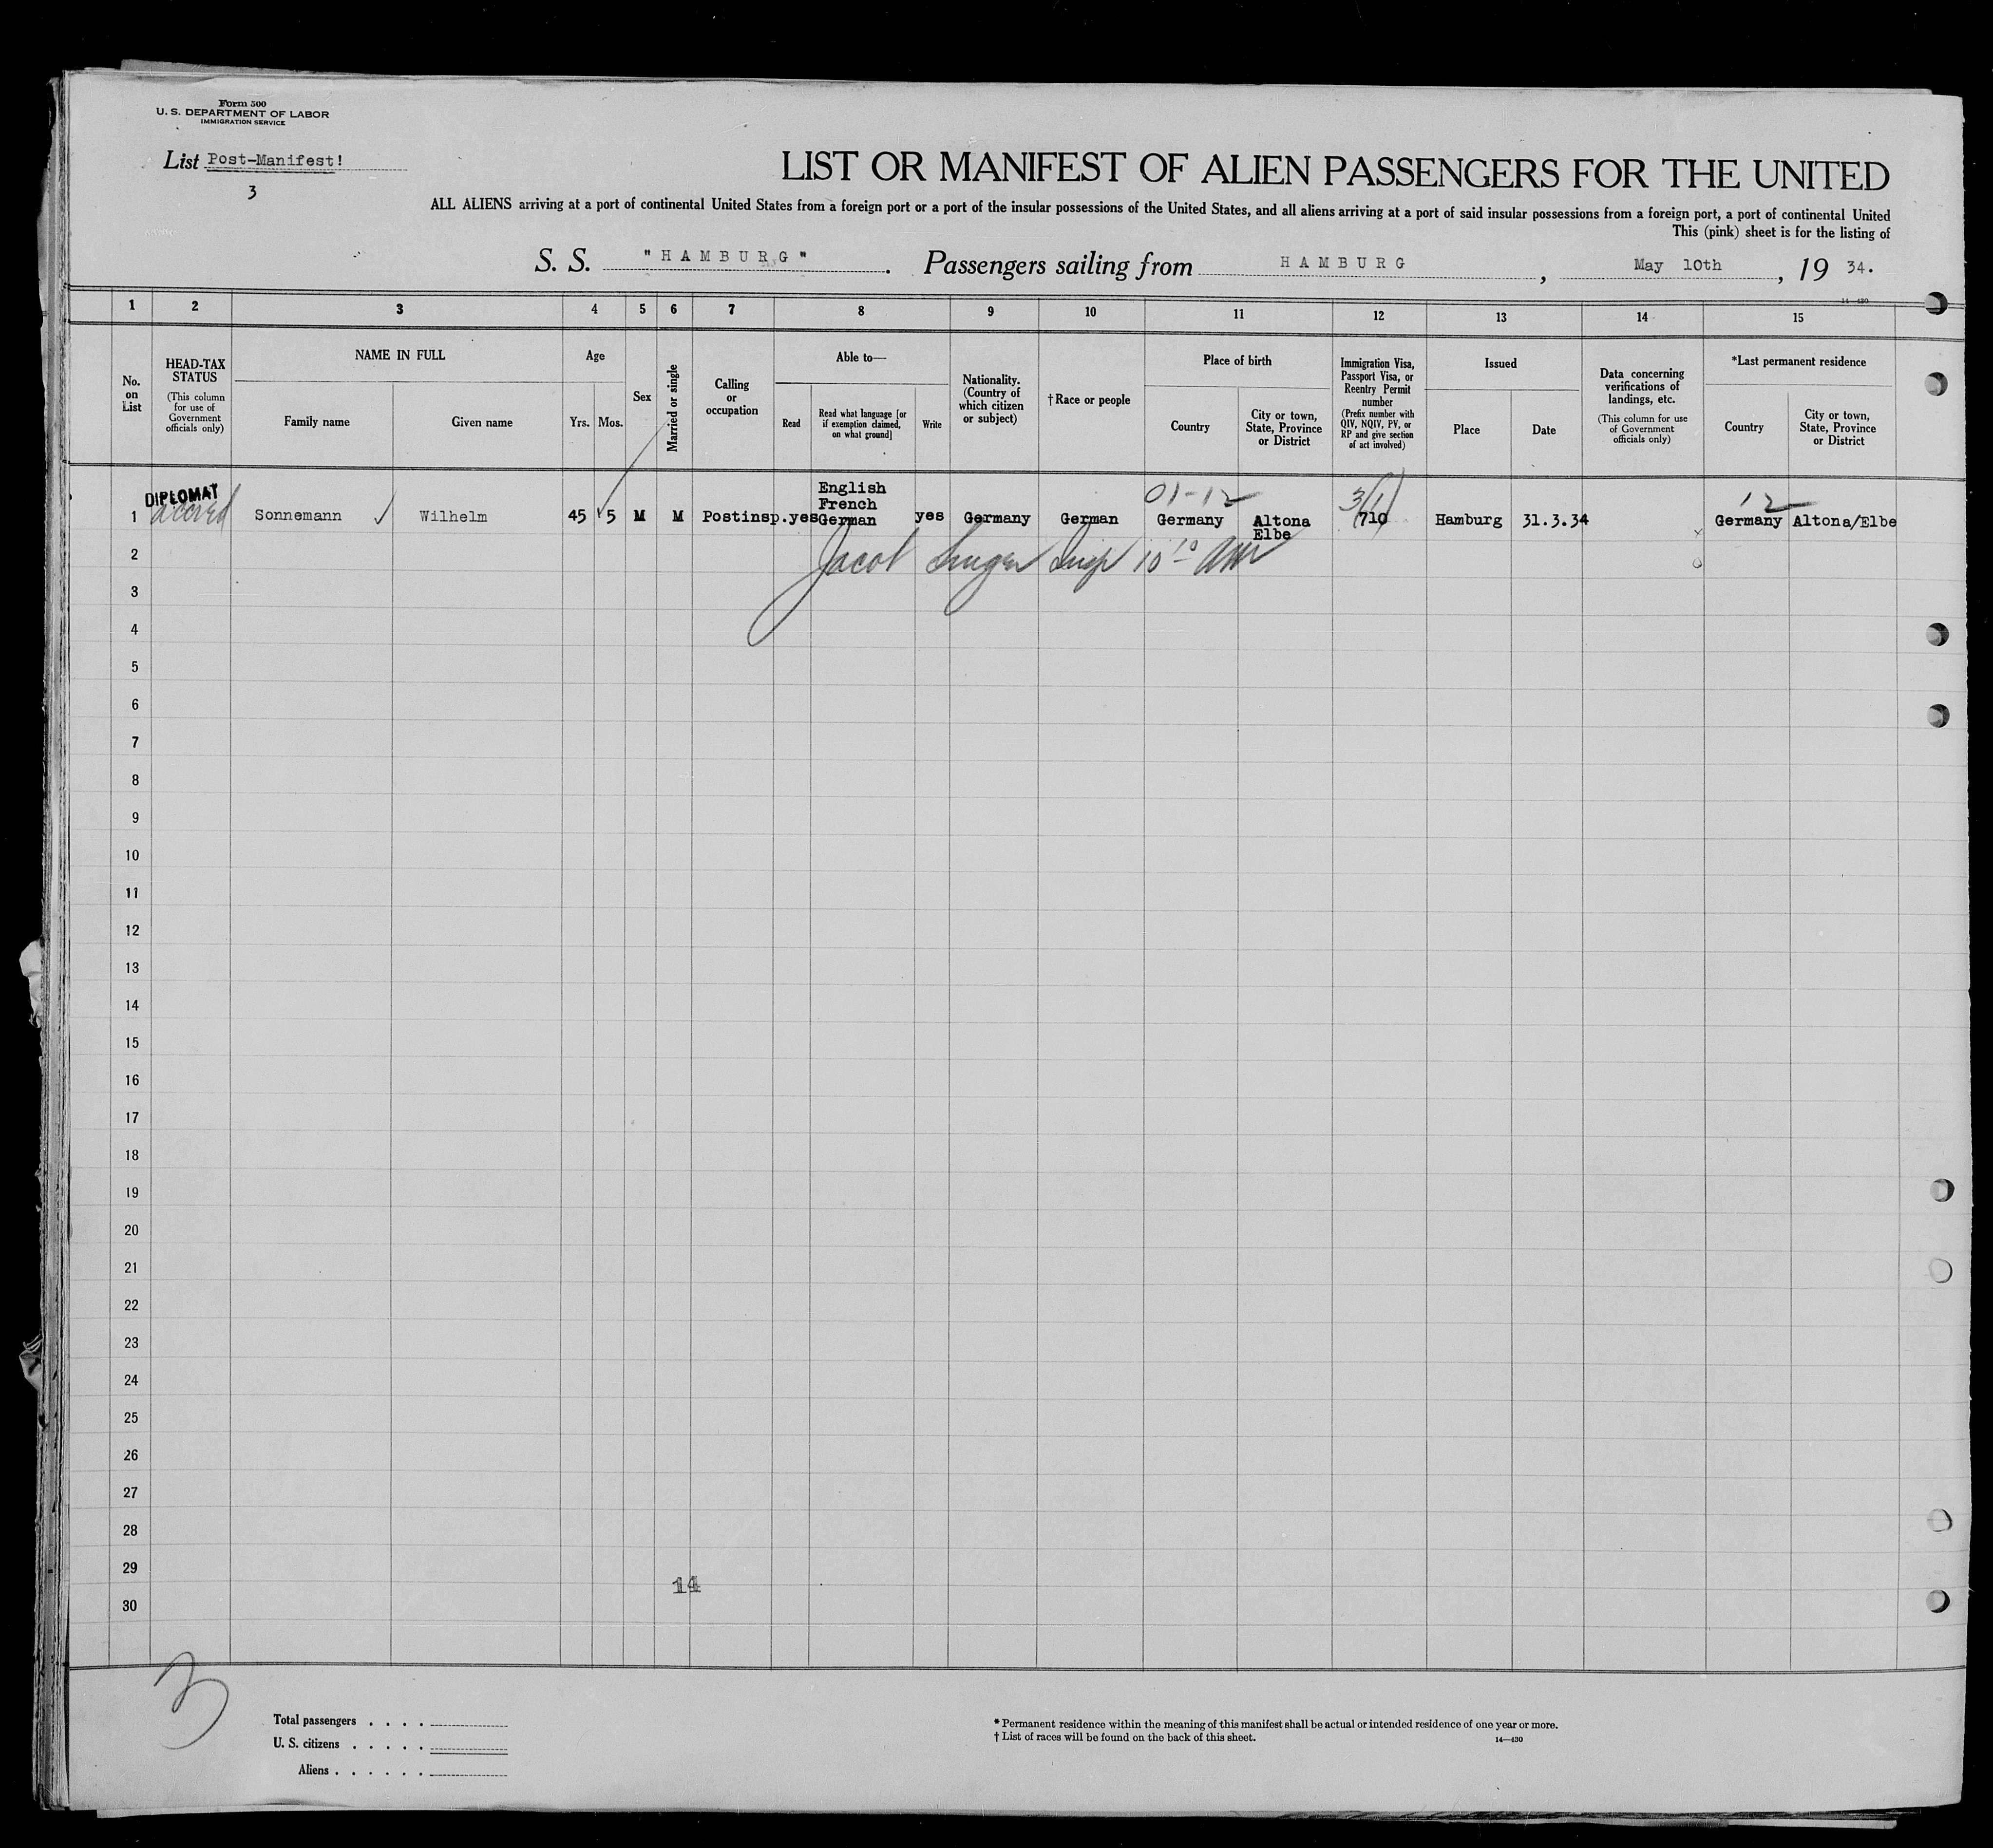 Form 500
U. S. DEPARTMENT OF LABOR
IMMIGRATION SERVICE
List Post-Manifest!
3
LIST OR MANIFEST OF ALIEN PASSENGERS FOR THE UNITED
ALL ALIENS arriving at a port of continental United States from a foreign port or a port of the insular possessions of the United States, and all aliens arriving at a port of said insular possessions from a foreign port, a port of continental United
This (pink) sheet is for the listing of
S. S. "HAMBURG". Passengers sailing from HAMBURG, May 10th, 19 34.
14—430
1 2 3 4 5 6 7 8 9 10 11 12 13 14 15
No. on List
HEAD-TAX STATUS
(This column for use of Government officials only)
NAME IN FULL
Family name
Given name
Age
Yrs. Mos.
Sex
Married or single
Calling or occupation
Able to—
Read
Read what language [or if exemption claimed, on what ground]
Write
Nationality. (Country of which citizen or subject)
†Race or people
Place of birth
Country
City or town, State, Province or District
Immigration Visa, Passport Visa, or Reentry Permit number
(Prefix number with QIV, NQIV, PV, or RP and give section of act involved)
Issued
Place
Date
Data concerning verifications of landings, etc.
(This column for use of Government officials only)
*Last permanent residence
Country
City or town, State, Province or District
DIPLOMAT
01-12
3/1
12
1 Sonnemann Wilhelm 45 5 M M Postinsp. yes English French German yes Germany German Germany Altona Elbe 710 Hamburg 31.3.34 Germany Altona/Elbe
2 Jacob Singer Insp 10 10 AM
3
4
5
6
7
8
9
10
11
12
13
14
15
16
17
18
19
20
21
22
23
24
25
26
27
28
29
14
30
3
Total passengers . . . .
U. S. citizens . . . . .
Aliens . . . . . .
* Permanent residence within the meaning of this manifest shall be actual or intended residence of one year or more.
† List of races will be found on the back of this sheet.
14—430